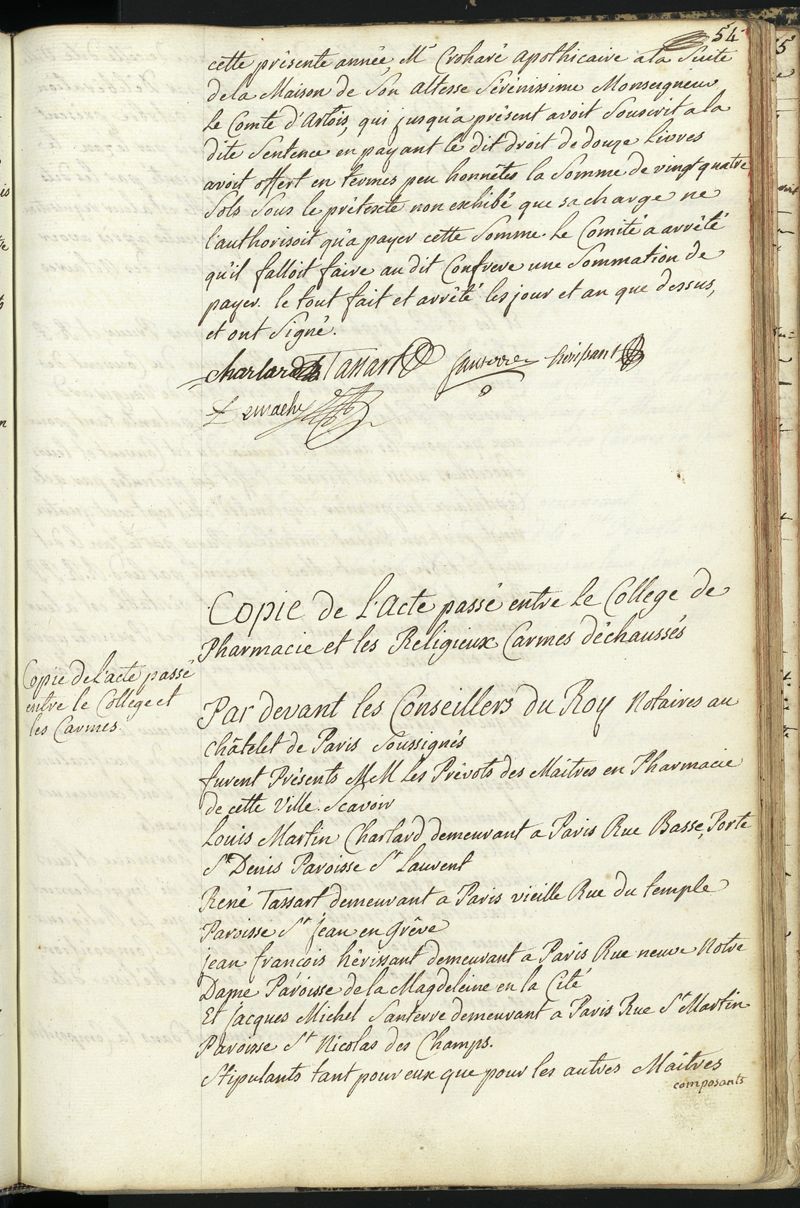 54
cette présente année, Mr Croharé apothicaire a la Suite
de la Maison de Son Altesse Sérénissime Monseigneur
Le Comte d'Artois, qui jusqu'a présent avoit Souscrit a la
dite Sentence en payant le dit droit de douze Livres
avoit offert en termes peu honnêtes la Somme de vingt quatre
Sols Sous le prétexte non exhibé que sa charge ne
l'authorisoit qu'a payer cette Somme. Le Comité a arrêté
qu'il falloit faire au dit Confrere une Sommation de
payer. le tout fait et arrêté les jour et an que dessus,
et ont Signé.
Charlard Tassart Santerre hérissant
Demachy
Copie de L'Acte passé entre Le College de
Pharmacie et les Religieux Carmes déchaussés
Copie de L'acte passé
entre le College et
les Carmes.
Par devant les Conseillers du Roy Notaires au
châtelet de Paris Soussignés
furent Présents M M Les Prévots des Maitres en Pharmacie
de cette Ville. Scavoir
Louis Martin Charlard demeurant a Paris Rue Basse, Porte
St Denis Paroisse St Laurent
René Tassart demeurant a Paris vieille Rue du temple
Paroisse St jean en Grêve
jean francois hérissant demeurant a Paris Rue neuve Notre
Dame Paroisse de la Magdeleine en la Cité
Et Jacques Michel Santerre demeurant a Paris Rue St Martin
Paroisse St Nicolas des Champs.
Stipulants tant pour eux que pour les autres Maitres
composants